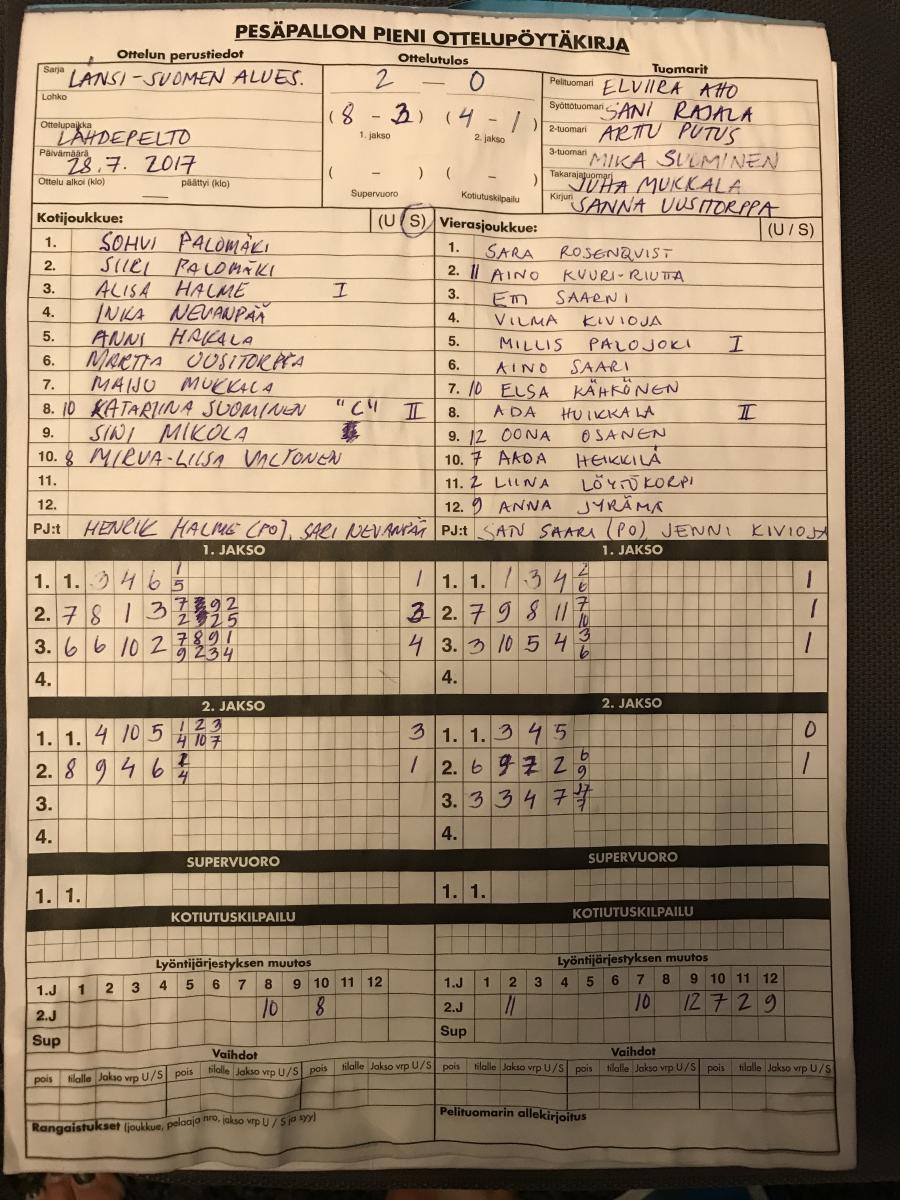 PESÄPALLON PIENI OTTELUPÖYTÄKIRJA
Ottelun perustiedot
Sarja LÄNSI-SUOMEN ALUES.
Lohko
Ottelupaikka LÄHDEPELTO
Päivämäärä 28.7. 2017
Ottelu alkoi (klo) päättyi (klo)
Ottelutulos
2 — 0
(8 - 3) (4 - 1)
1. jakso 2. jakso
( - ) ( - )
Supervuoro Kotiutuskilpailu
Tuomarit
Pelituomari ELVIIRA AHO
Syöttötuomari SANI RAJALA
2-tuomari ARTTU PUTUS
3-tuomari MIKA SUOMINEN
Takarajatuomari JUHA MUKKALA
Kirjuri SANNA UUSITORPPA
Kotijoukkue: (U S)
1. SOHVI PALOMÄKI
2. SIIRI PALOMÄKI
3. ALISA HALME I
4. INKA NEVANPÄÄ
5. ANNI HAKALA
6. MARTTA UUSITORPPA
7. MAIJU MUKKALA
8. 10 KATARIINA SUOMINEN "C" II
9. SINI MIKOLA
10. 8 MIRVA-LIISA VALTONEN
11.
12.
PJ:t HENRIK HALME (PO), SARI NEVANPÄÄ
Vierasjoukkue: (U / S)
1. SARA ROSENQVIST
2. 11 AINO KVURI-RIUTTA
3. ETTI SAARNI
4. VILMA KIVIOJA
5. MILLIS PALOJOKI I
6. AINO SAARI
7. 10 ELSA KÄHKÖNEN
8. ADA HUIKKALA II
9. 12 OONA OSANEN
10. 7 AADA HEIKKILÄ
11. 2 LIINA LÖYTÖKORPI
12. 9 ANNA JYRÄMÄ
PJ:t SAARI (PO) JENNI KIVIOJA
1. JAKSO
1. 1. 3 4 6 1 1
5
2. 7 8 1 3 7 9 2 3
2 2 5
3. 6 6 10 2 7 8 9 1 4
9 2 3 4
4.
1. JAKSO
1. 1. 1 3 4 2 1
6
2. 7 9 8 11 7 1
10
3. 3 10 5 4 3 1
6
4.
2. JAKSO
1. 1. 4 10 5 1 2 3 3
4 10 7
2. 8 9 4 6 1
4
3.
4.
2. JAKSO
1. 1. 3 4 5 0
2. 6 9 7 2 6 1
9
3. 3 3 4 7
7
4.
SUPERVUORO
1. 1.
SUPERVUORO
1. 1.
KOTIUTUSKILPAILU
KOTIUTUSKILPAILU
Lyöntijärjestyksen muutos
1.J 1 2 3 4 5 6 7 8 9 10 11 12
2.J 10 8
Sup
Lyöntijärjestyksen muutos
1.J 1 2 3 4 5 6 7 8 9 10 11 12
2.J 11 10 12 7 2 9
Sup
Vaihdot
pois tilalle Jakso vrp U/S pois tilalle Jakso vrp U/S pois tilalle Jakso vrp U/S
Vaihdot
pois tilalle Jakso vrp U/S pois tilalle Jakso vrp U/S pois tilalle Jakso vrp U/S
Rangaistukset (joukkue, pelaaja nro, jakso vrp U / S ja syy)
Pelituomarin allekirjoitus